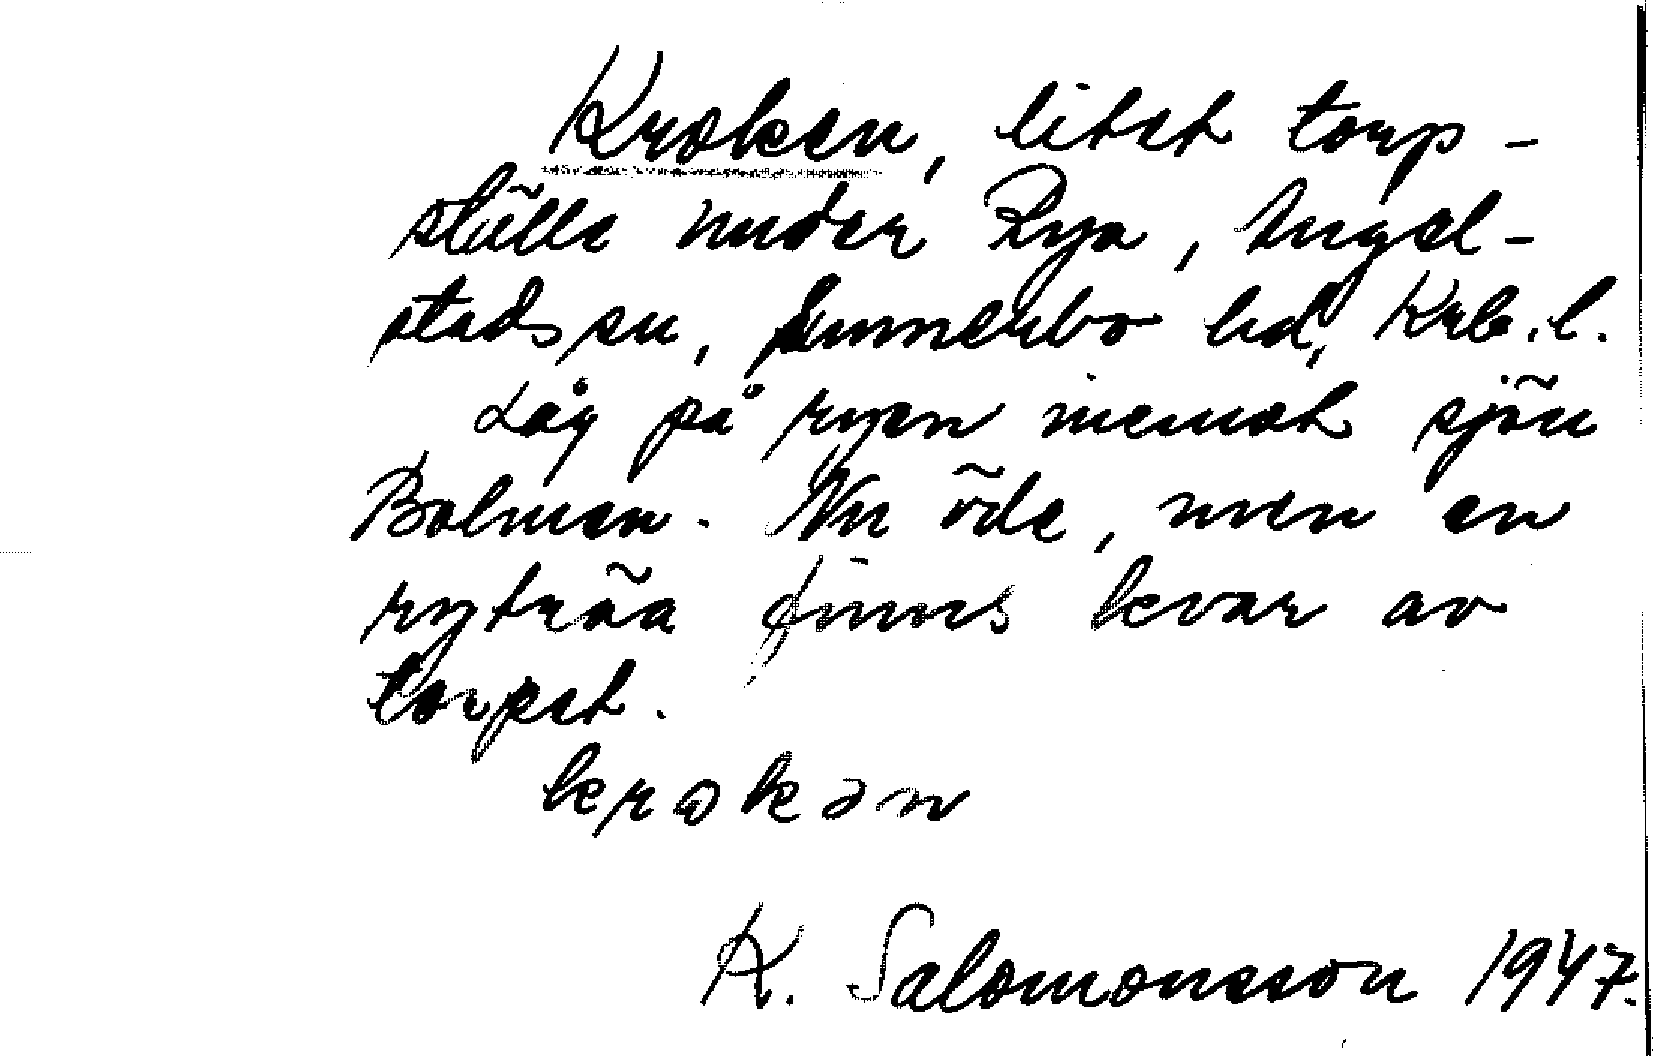 Kroken, litet torp-
ställe under Rya, Angel-
stads sn, Sunnerbo hd, Krb. l.
Låg på ryen inemot sjön
Bolmen. Nu öde, men en
ryträa finns kvar av
torpet.
krokən
K. Salomonsson 1947.